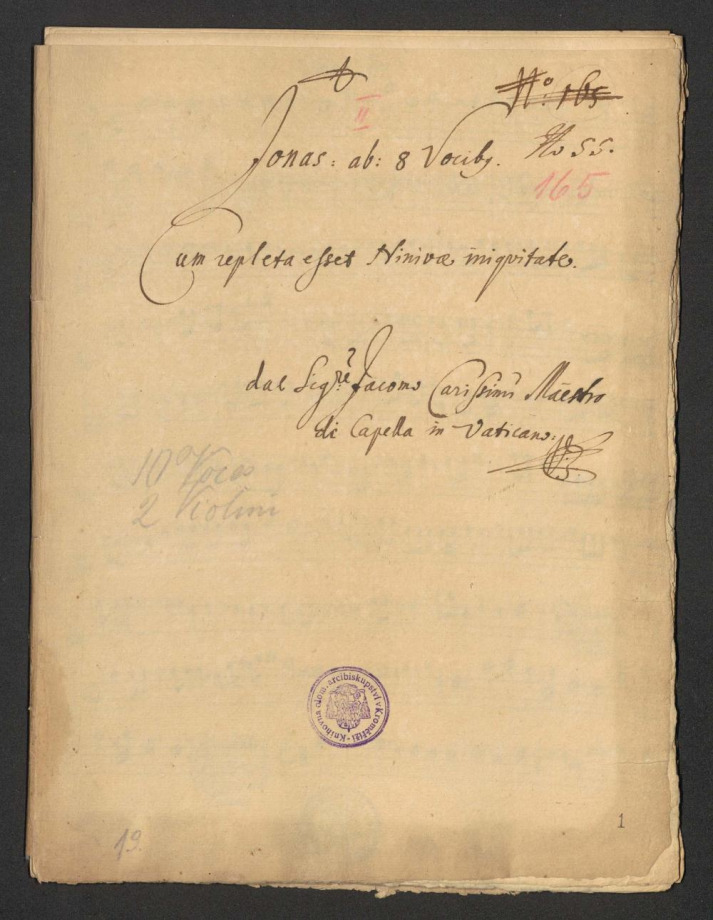 A
N.º 165
II
Jonas: ab: 8 Vocibq.
No 55.
165
Cum repleta esset Ninivæ iniqvitate.
dal Sigre. Jacomo Carissimi Maestro
di Capella in Vaticano:
10 Voces
2 Violini
Knihovna olom. arcibiskupství v Kroměříži
19.
1